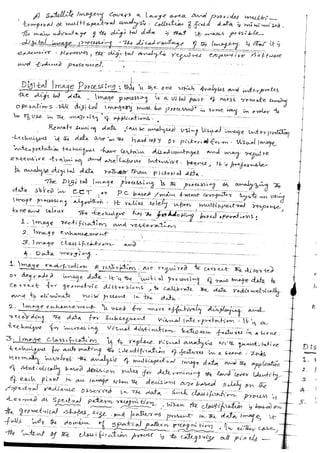 A Satellite Imagery covers a large area and provides multi-
temporal or multispectral analysis. Collection of field data is minimized.
The main advantage of the digital data is that it makes possible
digital image processing. The disadvantage of the Imagery is that it is
expensive. However, the digital analysis requires expensive software
and trained personal.
Digital Image Processing: This is the one which Analyses and interpretes
the digital data. Image processing is a vital part of most remote sensing
operations. All digital imagery must be processed in some way in order to
be of use in the majority of applications.
Remote sensing data can be analysed using visual image interpretation
techniques if the data are in the hardcopy or pictorial form. Visual image
interpretation techniques have certain disadvantages and may require
extensive training and are labour intensive. Hence, it is preferable
to analyse digital data rather than pictorial data.
The Digital Image processing is the processing or analysing the
data stored in CCT or PC based / main frame computer system using
image processing algorithm. It relies solely upon multispectral response,
tone and colour. The technique has the following broad operations:
1. Image rectification and restoration
2. Image enhancement
3. Image classification and
4. Data merging.
1. Image rectification & restoration are required to correct the distorted
or degraded image data. It is the initial processing of raw image data to
correct for geometric distortions, to calibrate the data radiometrically
and to eliminate noise present in the data.
2. Image enhancement is used for more effectively displaying and
recording the data for subsequent visual interpretation. It is a
technique for increasing visual distinction between features in a scene.
3. Image classification is to replace visual analysis with quantitative
technique for automating the identification of features in a scene. This
normally involves the analysis of multispectral image data and the application
of statistically based decision rules for determining the land cover identity
of each pixel in an image. When the decisions are based solely on the
spectral radiance observed in the data such classification process is
termed as spectral pattern recognition. When the classification is based on
the geometrical shapes, size and patterns present in the data image, it
falls into the domain of spatial pattern recognition. In either case,
the intent of the classification process is to categorise all pixels